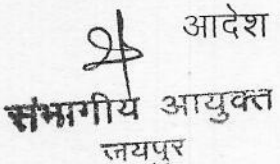 आदेश
संभागीय आयुक्त
जयपुर